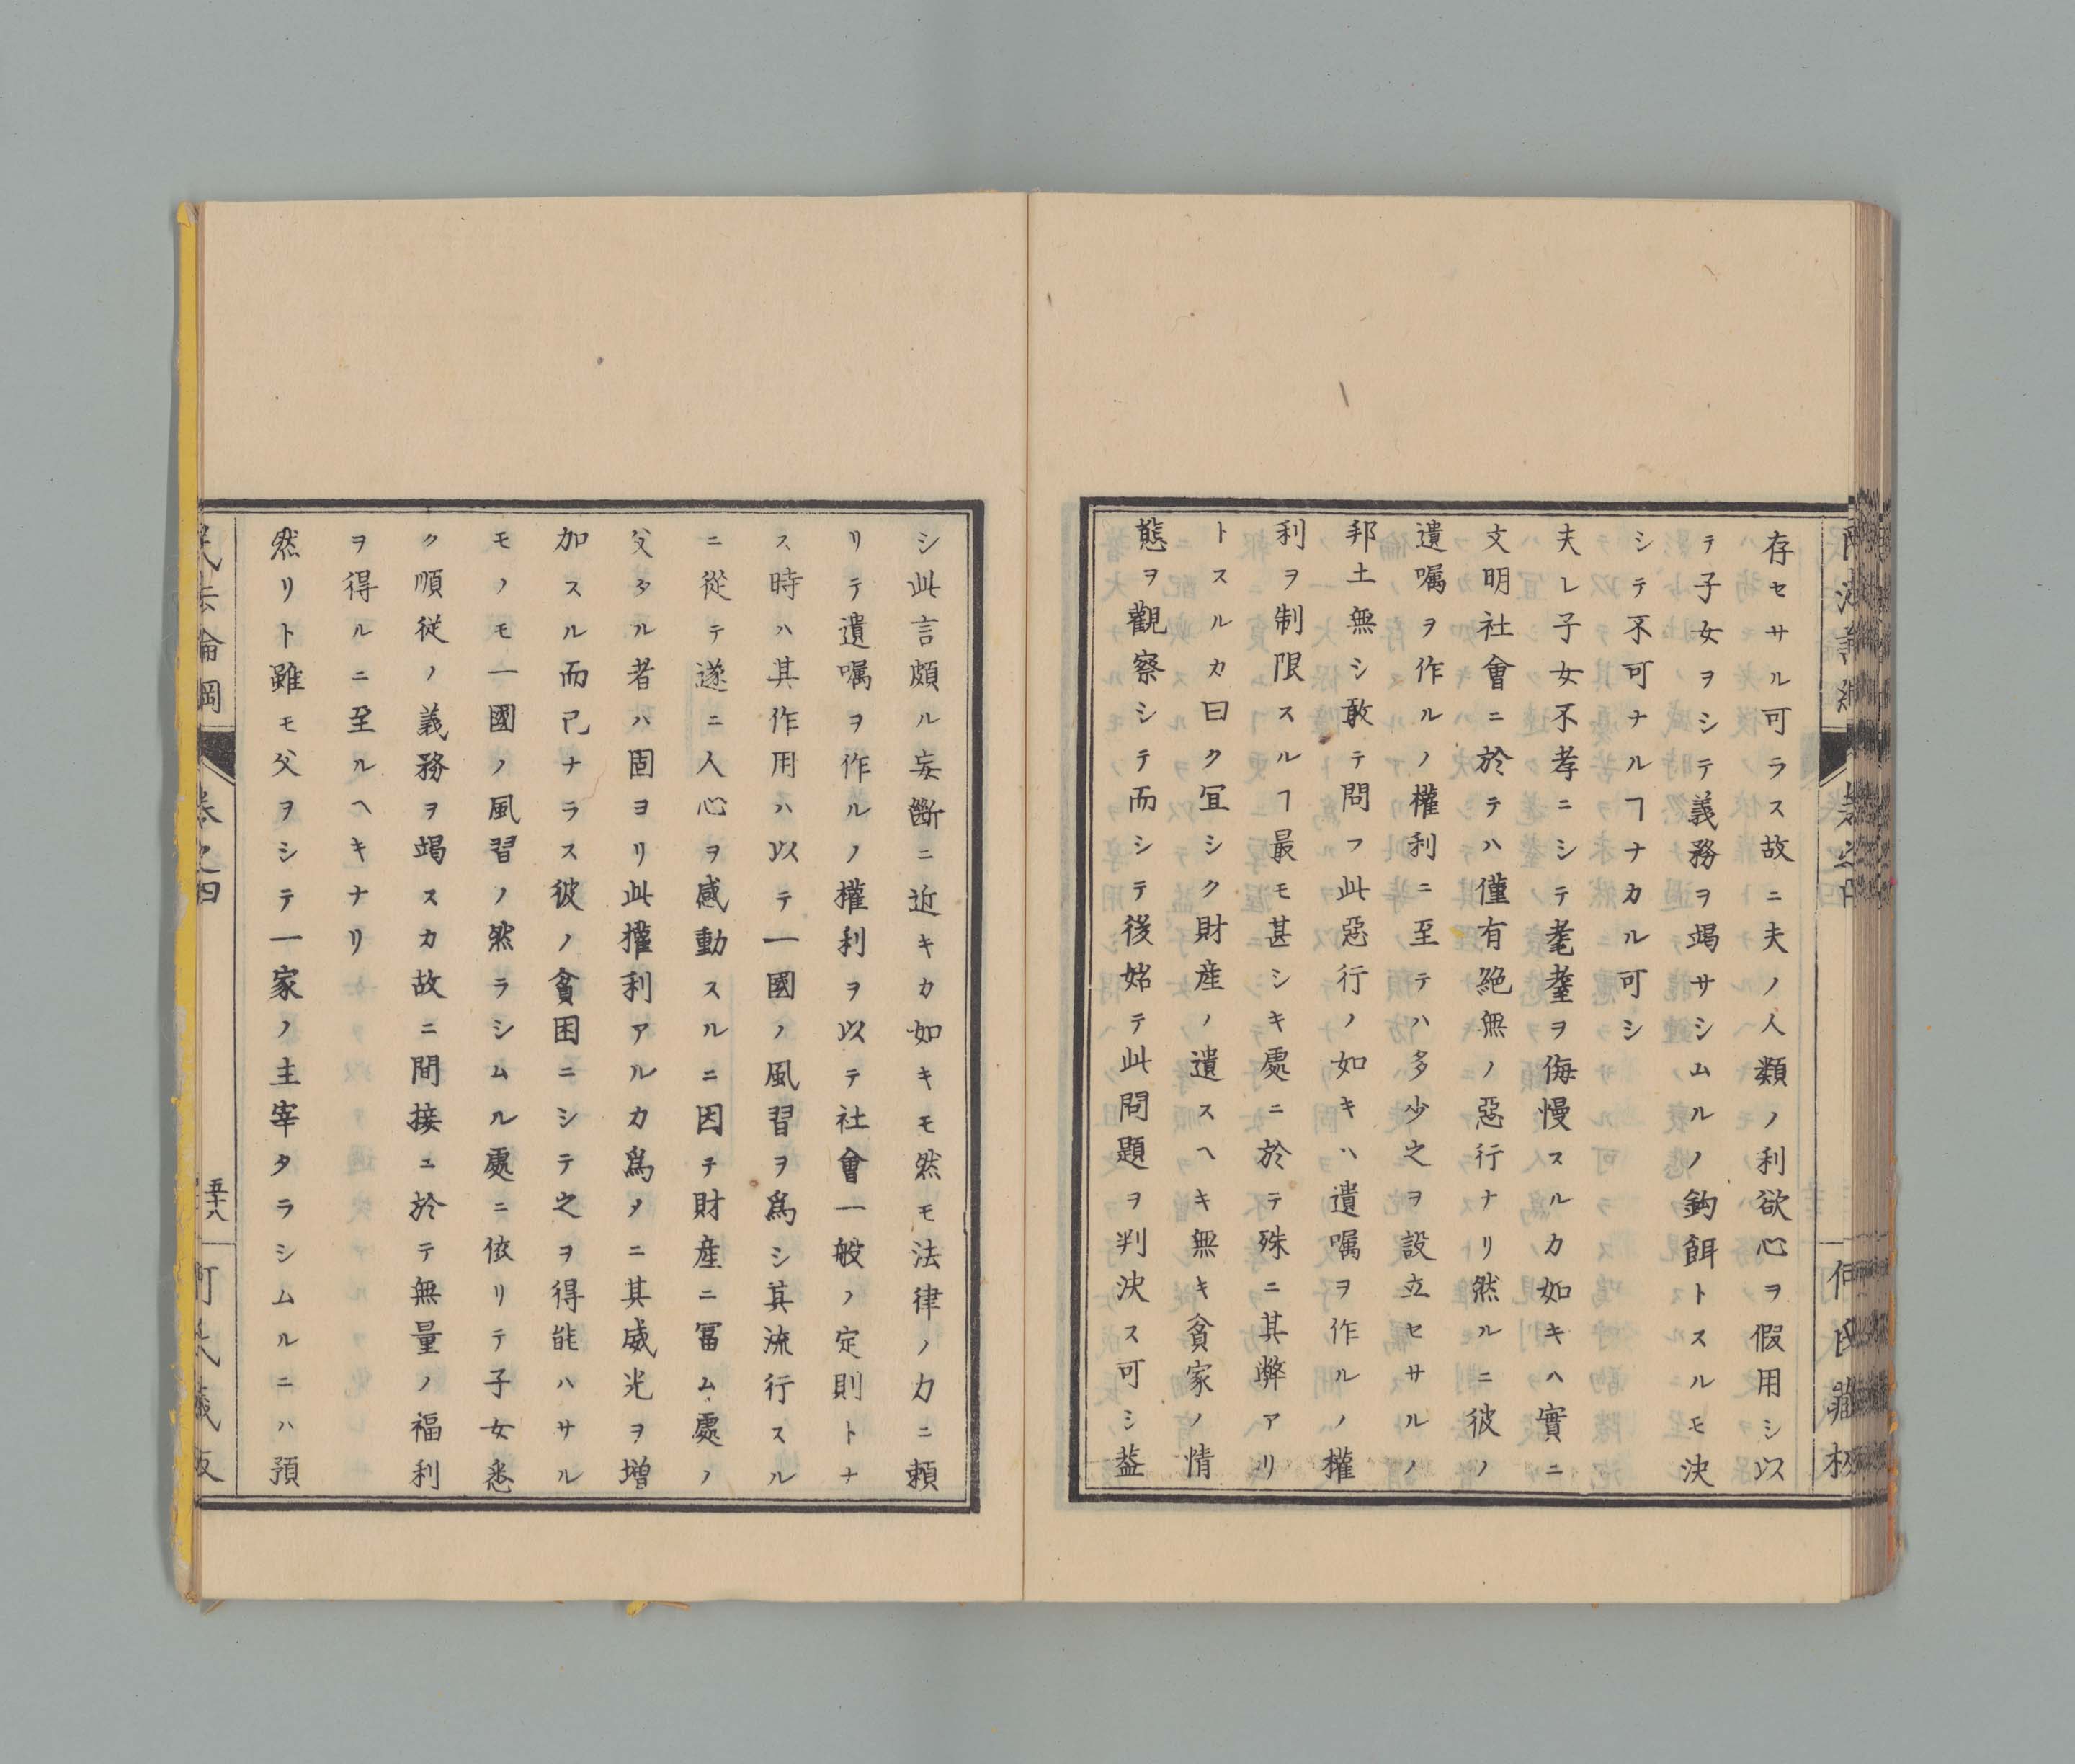 存セサル可ラス故ニ夫ノ人類ノ利欲心ヲ假用シ以
テ子女ヲシテ義務ヲ竭サシムルノ鈎餌トスルモ決
シテ不可ナルヿナカル可シ
夫レ子女不孝ニシテ耄耋ヲ侮慢スルカ如キハ實ニ
文明社會ニ於テハ僅有絕無ノ惡行ナリ然ルニ彼ノ
遺嘱ヲ作ルノ權利ニ至テハ多少之ヲ設立セサルノ
邦土無シ敢テ問フ此惡行ノ如キハ遺嘱ヲ作ルノ權
利ヲ制限スルヿ最モ甚シキ處ニ於テ殊ニ其弊アリ
トスルカ曰ク冝シク財産ノ遺スヘキ無キ貧家ノ情
態ヲ觀察シテ而シテ後始テ此問題ヲ判決ス可シ葢
シ此言頗ル妄斷ニ近キカ如キモ然モ法律ノ力ニ頼
リテ遺嘱ヲ作ルノ權利ヲ以テ社會一般ノ定則トナ
ス時ハ其作用ハ以テ一國ノ風習ヲ爲シ其流行スル
ニ從テ遂ニ人心ヲ感動スルニ因テ財産ニ冨ム處ノ
父タル者ハ固ヨリ此權利アルカ爲メニ其威光ヲ增
加スル而已ナラス彼ノ貧困ニシテ之ヲ得能ハサル
モノモ一國ノ風習ノ然ラシムル處ニ依リテ子女悉
ク順従ノ義務ヲ竭スカ故ニ間接ニ於テ無量ノ福利
ヲ得ルニ至ルヘキナリ
然リト雖モ父ヲシテ一家ノ主宰タラシムルニハ預
民法論綱 卷之四 五十八 何氏藏版